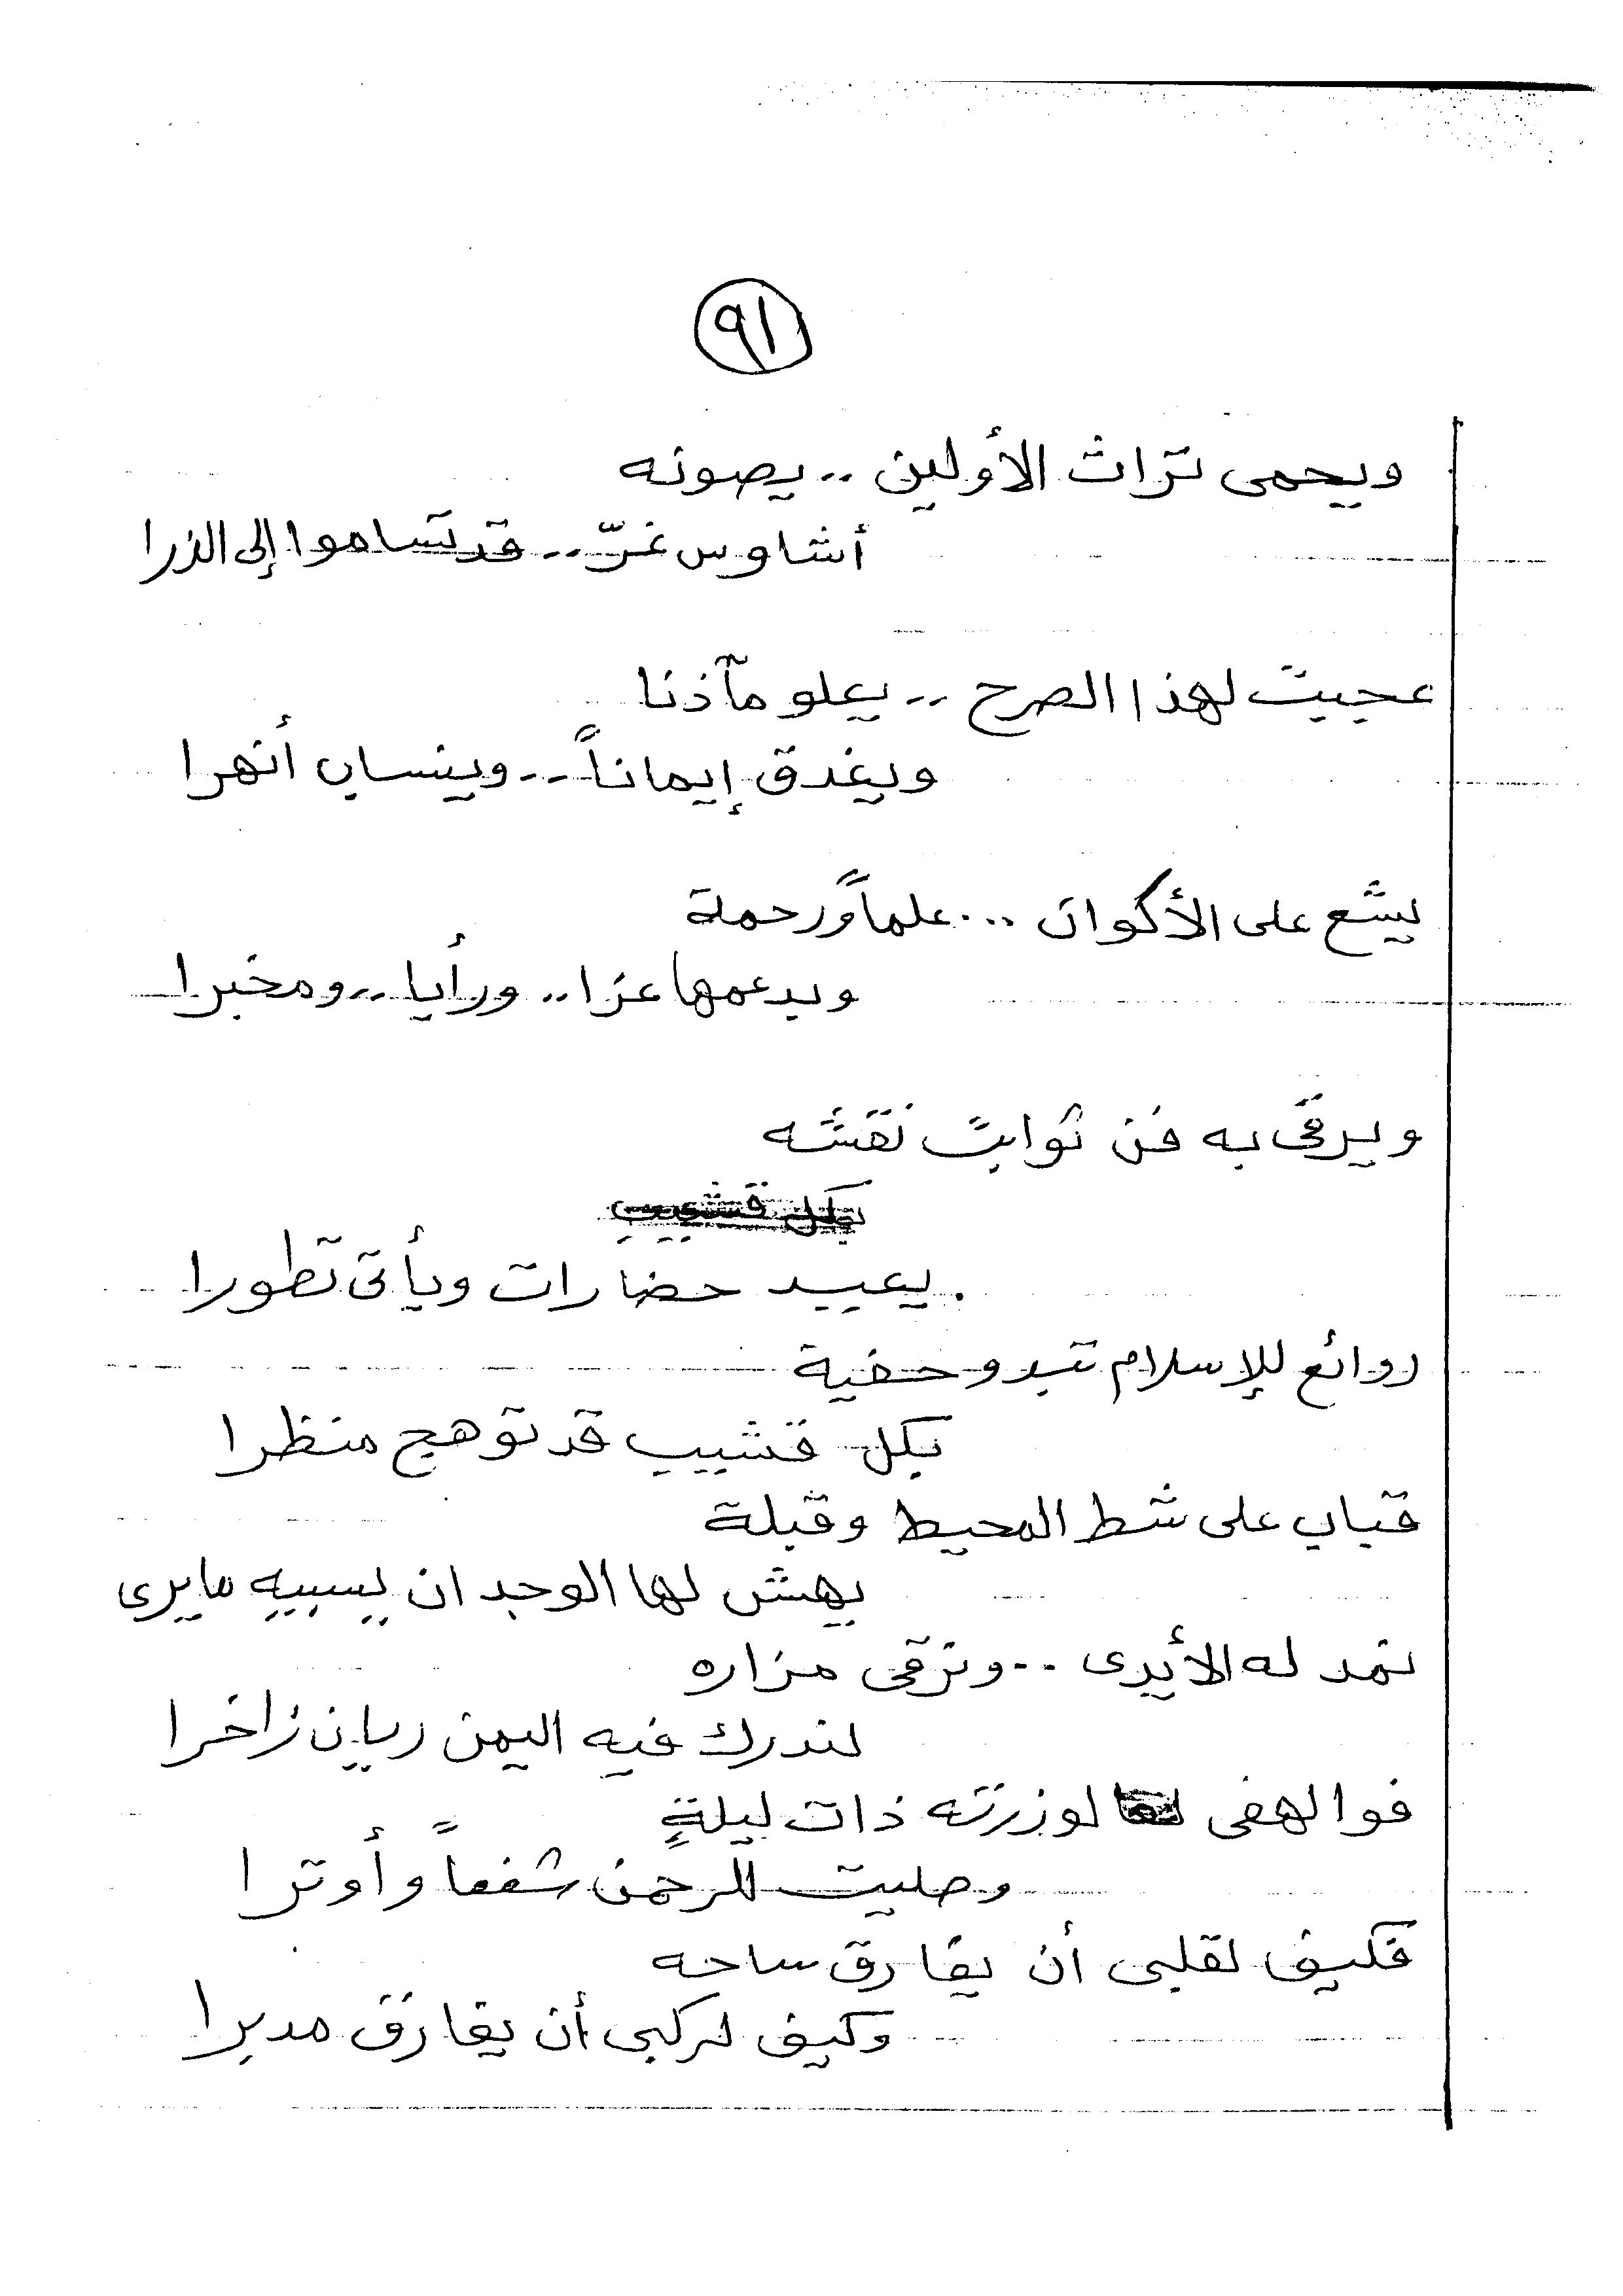 ٩١
ويحمى تراث الأولين .. يصونه
أشاوس غرّ .. قد تساموا إلى الذرا
عجبت لهذا الصرح .. يعلو مآذنا
ويغدق إيماناً .. وينساب أنهرا
يشع على الأكوان ... علماً ورحمة
ويدعمها عزا .. ورأيا .. ومخبرا
ويرقى به فن ثوابت نقشه
بكل قشيب
يعيد حضارات ويأتى تطورا
روائع للإسلام تبدو حفية
بكل قشيب قد توهج منظرا
قباب على شط المحيط وقبلة
يهش لها الوجدان يسبيه مايرى
نمد له الأيدى .. ونرقى مزاره
لندرك فيه اليمن ريان زاخرا
فوا لهفى لو زرته ذات ليلةٍ
وصليت للرحمن شفعاً وأوترا
فكيف لقلبى أن يفارق ساحه
وكيف لركبى أن يفارق مدبرا